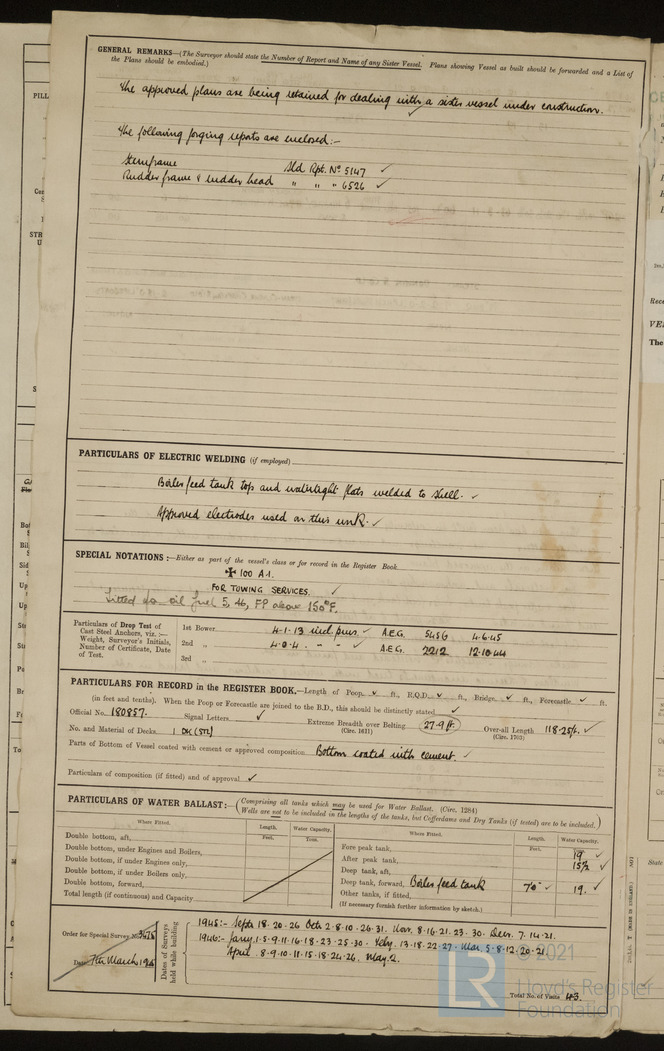 GENERAL REMARKS—(The Surveyor should state the Number of Report and Name of any Sister Vessel. Plans showing Vessel as built should be forwarded and a List of
the Plans should be embodied.)
The approved plans are being retained for dealing with a sister vessel under construction.
The following forging reports are enclosed:-
Sternframe Sld Rpt. No 5147 ✓
Rudder frame & rudder head " " " 6526 ✓
PARTICULARS OF ELECTRIC WELDING (if employed)
Boiler feed tank top and watertight flats welded to shell. ✓
Approved electrodes used on this work. ✓
SPECIAL NOTATIONS:—Either as part of the vessel's class or for record in the Register Book.
✠ 100 A.1.
FOR TOWING SERVICES. ✓
Fitted for oil fuel 5,46, FP above 150°F.
Particulars of Drop Test of
Cast Steel Anchors, viz.:—
Weight, Surveyor's Initials,
Number of Certificate, Date
of Test.
1st Bower 4-1-13 incl. pins. ✓ A.E.G. 5456 4.6.45
2nd " 4.0.4. - - ✓ A.E.G. 2212 12.10.44
3rd "
PARTICULARS FOR RECORD in the REGISTER BOOK.—Length of Poop ✓ ft., R.Q.D. ✓ ft., Bridge ✓ ft., Forecastle ✓ ft.
(in feet and tenths). When the Poop or Forecastle are joined to the B.D., this should be distinctly stated ✓
Official No. 180857. Signal Letters ✓ Extreme Breadth over Belting 27.9 ft. Over-all Length 118.25 ft. ✓
(Circ. 1611) (Circ. 1703)
No. and Material of Decks 1 DK (STL)
Parts of Bottom of Vessel coated with cement or approved composition Bottom coated with cement. ✓
Particulars of composition (if fitted) and of approval ✓
PARTICULARS OF WATER BALLAST:—(Comprising all tanks which may be used for Water Ballast. (Circ. 1284)
Wells are not to be included in the lengths of the tanks, but Cofferdams and Dry Tanks (if tested) are to be included.)
Where Fitted. Length. Water Capacity. Where Fitted. Length. Water Capacity.
Feet. Tons. Feet.
Double bottom, aft,
Double bottom, under Engines and Boilers,
Double bottom, if under Engines only,
Double bottom, if under Boilers only,
Double bottom, forward,
Total length (if continuous) and Capacity
Fore peak tank, 19 ✓
After peak tank, 15½ ✓
Deep tank, aft,
Deep tank, forward, Boiler feed tank 7'0" ✓ 19. ✓
Other tanks, if fitted,
(If necessary furnish further information by sketch.)
Order for Special Survey No. 3478
Date 7th March 194
Dates of Surveys
held while building
1945:- Septr 18.20.26 Octr 2.8.10.26.31. Novr. 8.16.21.23.30. Decr. 7.14.21.
1946:- Jany 1.5.9.11.16.18.23.25.30. Feby. 13.18.22.27. Mar. 5.8.12.20.21.
April. 8.9.10.11.15.18.24.26. May 2.
Total No. of Visits 43.
© 2021
LR
Lloyd's Register
Foundation